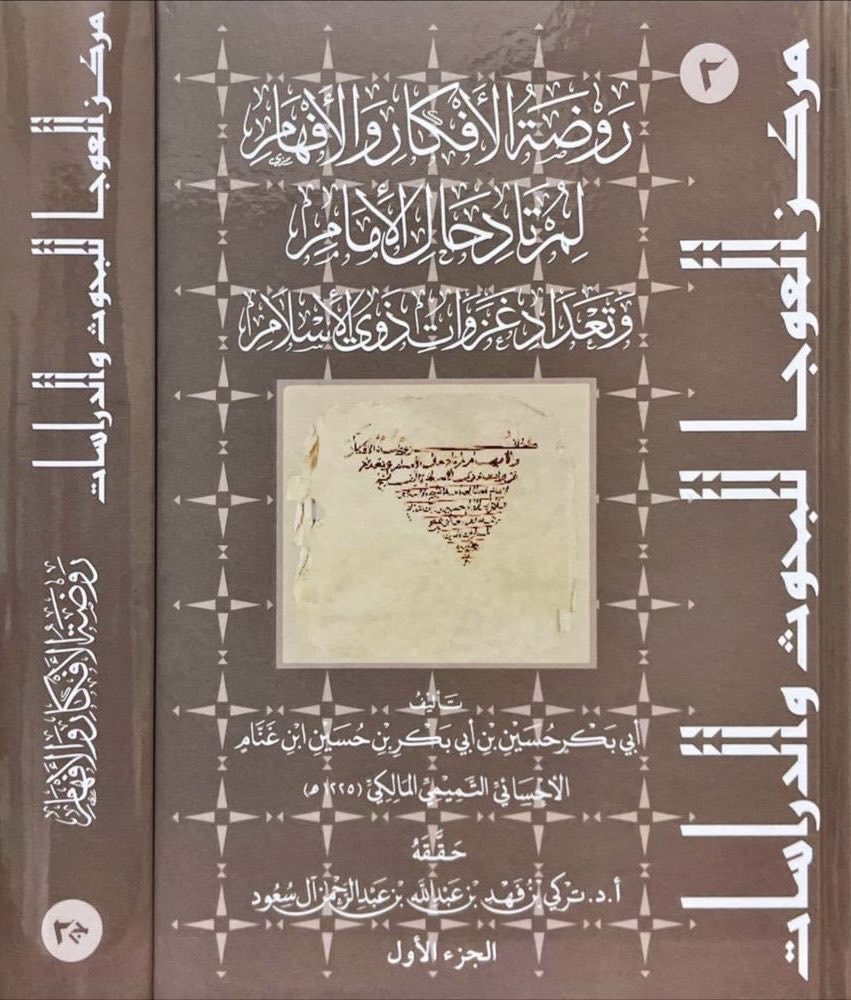 ٢
مركز العوجا للبحوث والدراسات
رَوْضَةُ الأَفْكَارِ وَالأَفْهَامِ
لِمُرْتَادِ حَالِ الأِمَامِ
وَتَعْدَادِ غَزَوَاتِ ذَوِي الأِسْلَامِ
تَأْلِيْفُ
أبِي بَكْرٍ حُسَيْنِ بْنِ أَبِي بَكْرِ بْنِ حُسَيْنِ ابْنِ غَنَّامٍ
الأَحْسَائِيِّ التَّمِيْمِيِّ المَالِكِيِّ (١٢٢٥ هـ)
حَقَّقَهُ
أ.د. تركي بْنُ فَهْدِ بْنِ عَبْدِ اللهِ بْنِ عَبْدِ الرَّحْمَنِ آلُ سُعُود
الجزء الأول
مركز العوجا للبحوث والدراسات
رَوْضَةُ الأَفْكَارِ وَالأَفْهَامِ